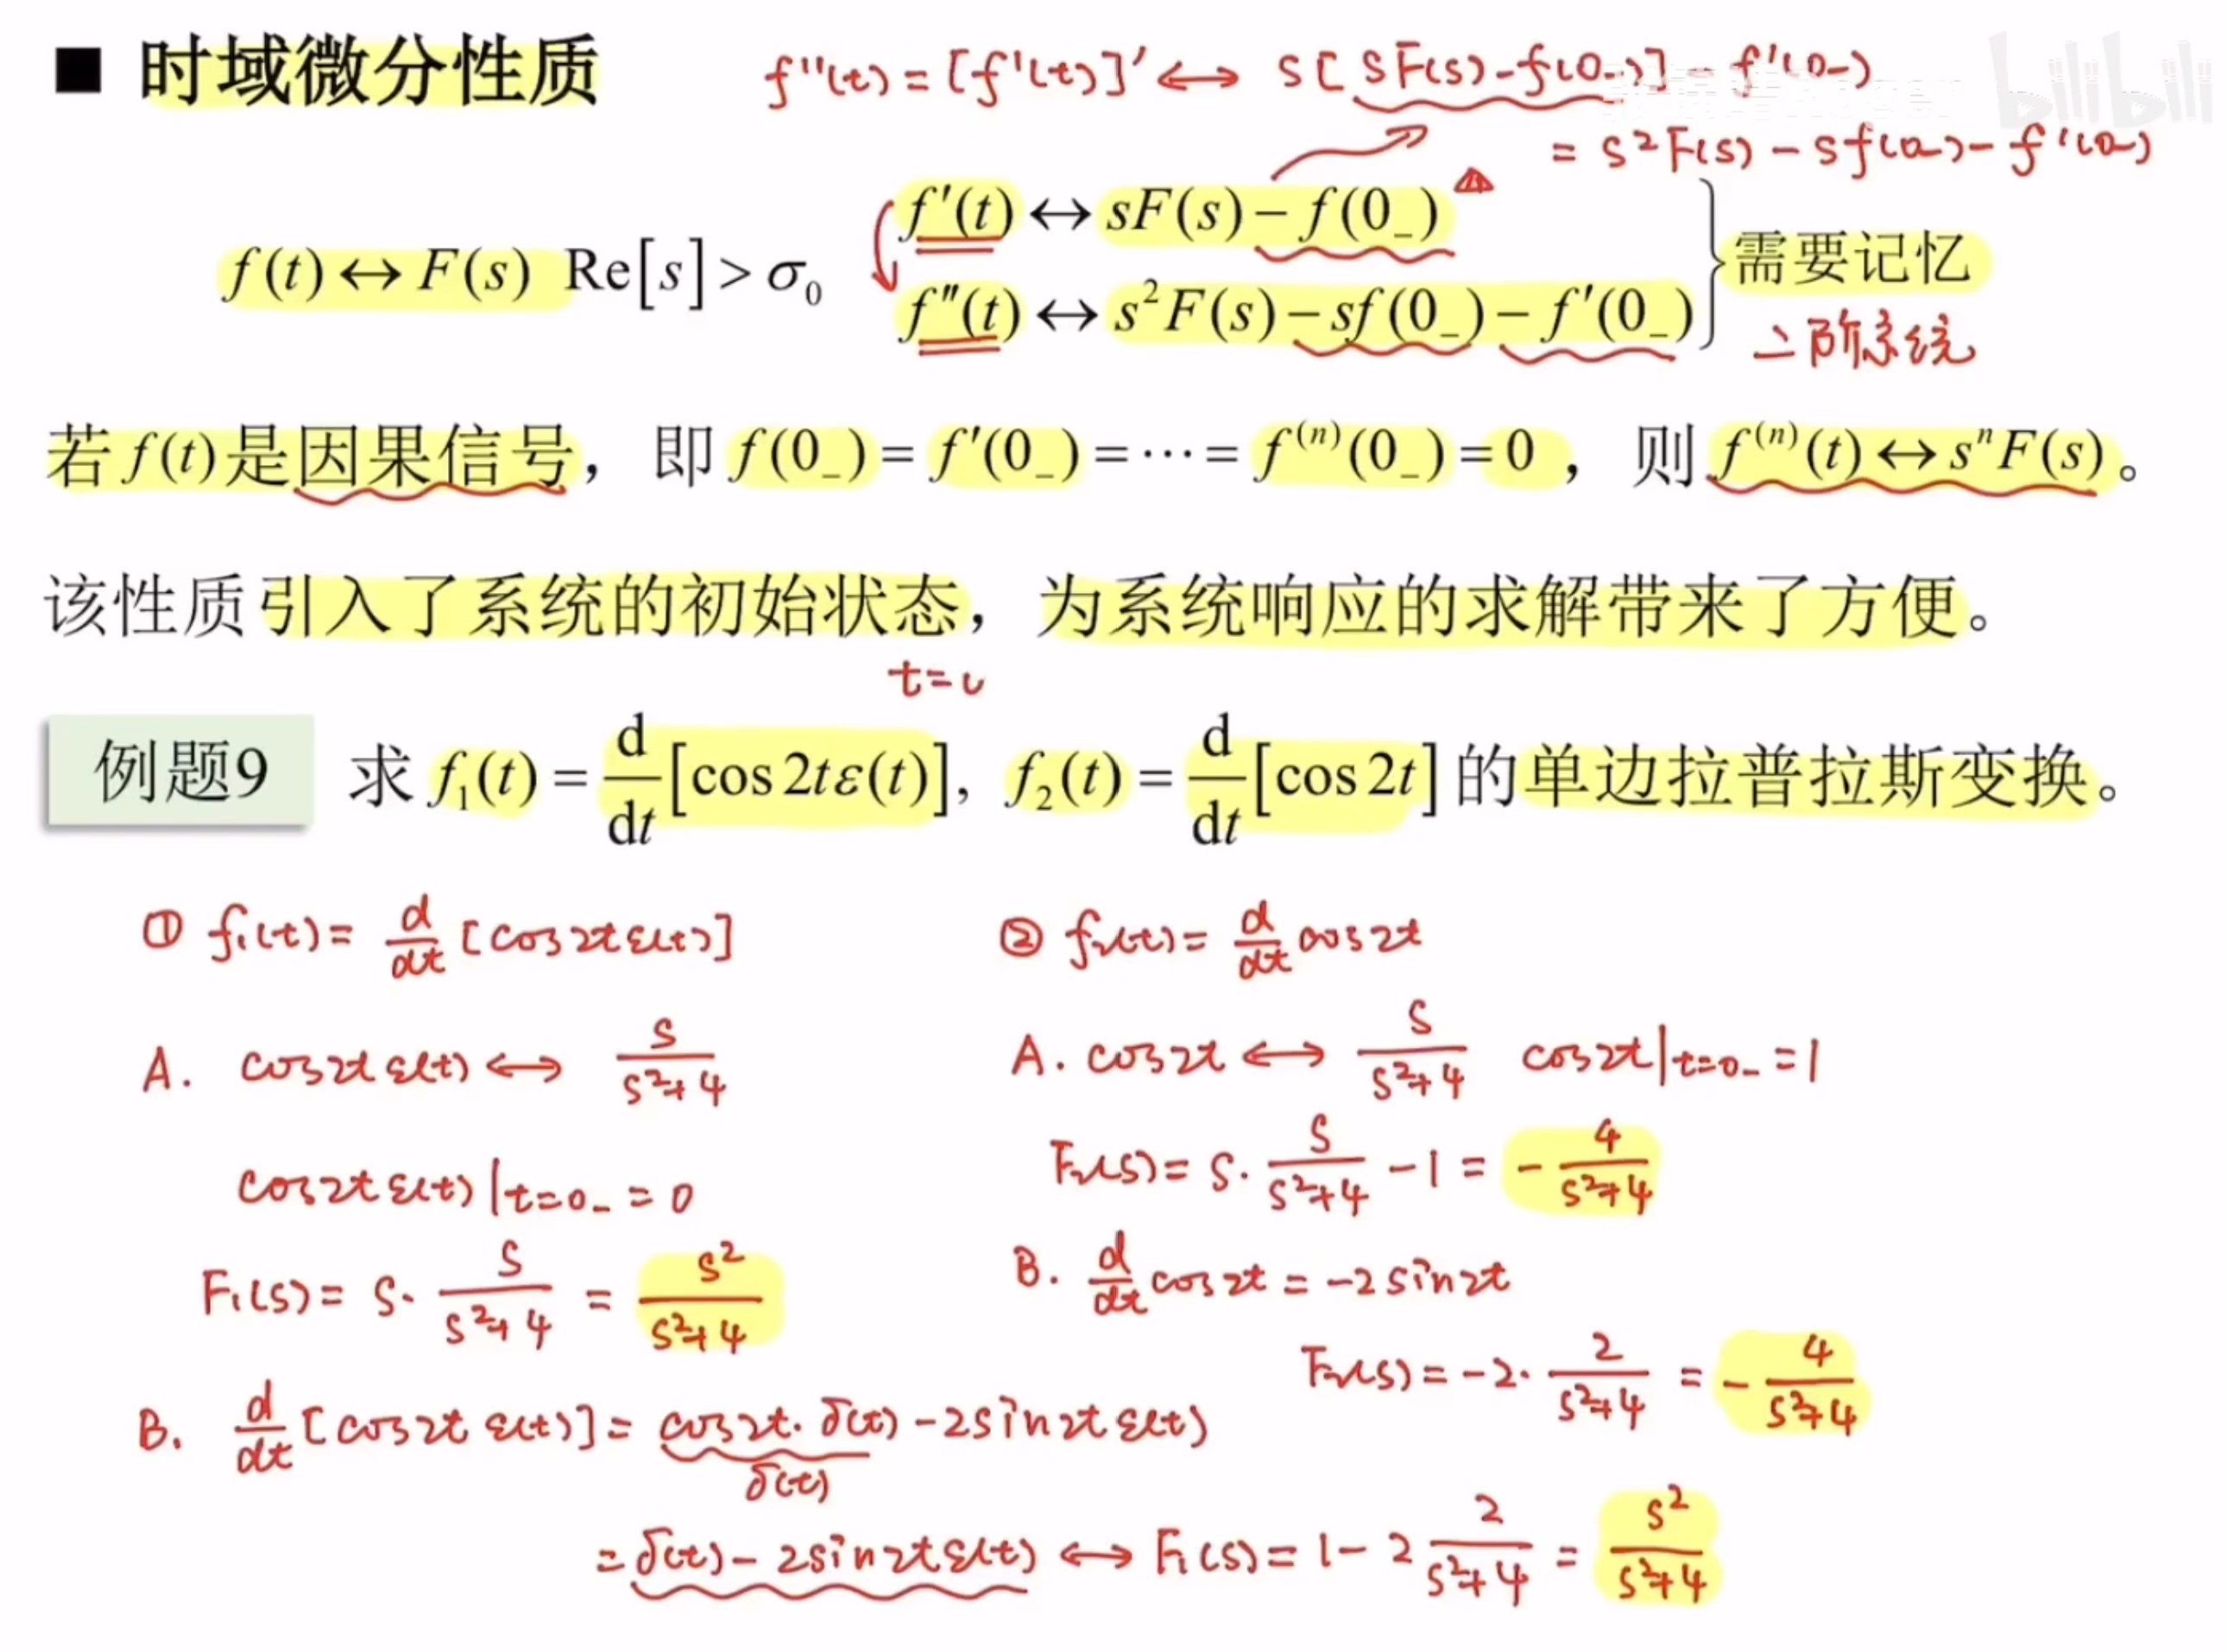 ■ 时域微分性质
f''(t) = [f'(t)]' ↔ s[sF(s) - f(0_-)] - f'(0_-)
= s²F(s) - sf(0_-) - f'(0_-)
f(t) ↔ F(s) Re[s] > σ₀
f'(t) ↔ sF(s) - f(0_-)
f''(t) ↔ s²F(s) - sf(0_-) - f'(0_-)
需要记忆
二阶系统
若 f(t) 是因果信号，即 f(0_-) = f'(0_-) = ⋯ = f^(n)(0_-) = 0，则 f^(n)(t) ↔ sⁿF(s)。
该性质引入了系统的初始状态，为系统响应的求解带来了方便。
t=0
例题9 求 f₁(t) = d/dt [cos 2tε(t)], f₂(t) = d/dt [cos 2t] 的单边拉普拉斯变换。
① f₁(t) = d/dt [cos2t ε(t)]
A. cos2t ε(t) ↔ s/(s²+4)
cos2t ε(t)|t=0_- = 0
F₁(s) = s · s/(s²+4) = s²/(s²+4)
B. d/dt [cos2t ε(t)] = cos2t · δ(t) - 2sin2t ε(t)
δ(t)
= δ(t) - 2sin2t ε(t) ↔ F₁(s) = 1 - 2 2/(s²+4) = s²/(s²+4)
② f₂(t) = d/dt cos2t
A. cos2t ↔ s/(s²+4) cos2t|t=0_- = 1
F₂(s) = s · s/(s²+4) - 1 = - 4/(s²+4)
B. d/dt cos2t = -2sin2t
F₂(s) = -2 · 2/(s²+4) = - 4/(s²+4)
bilibili